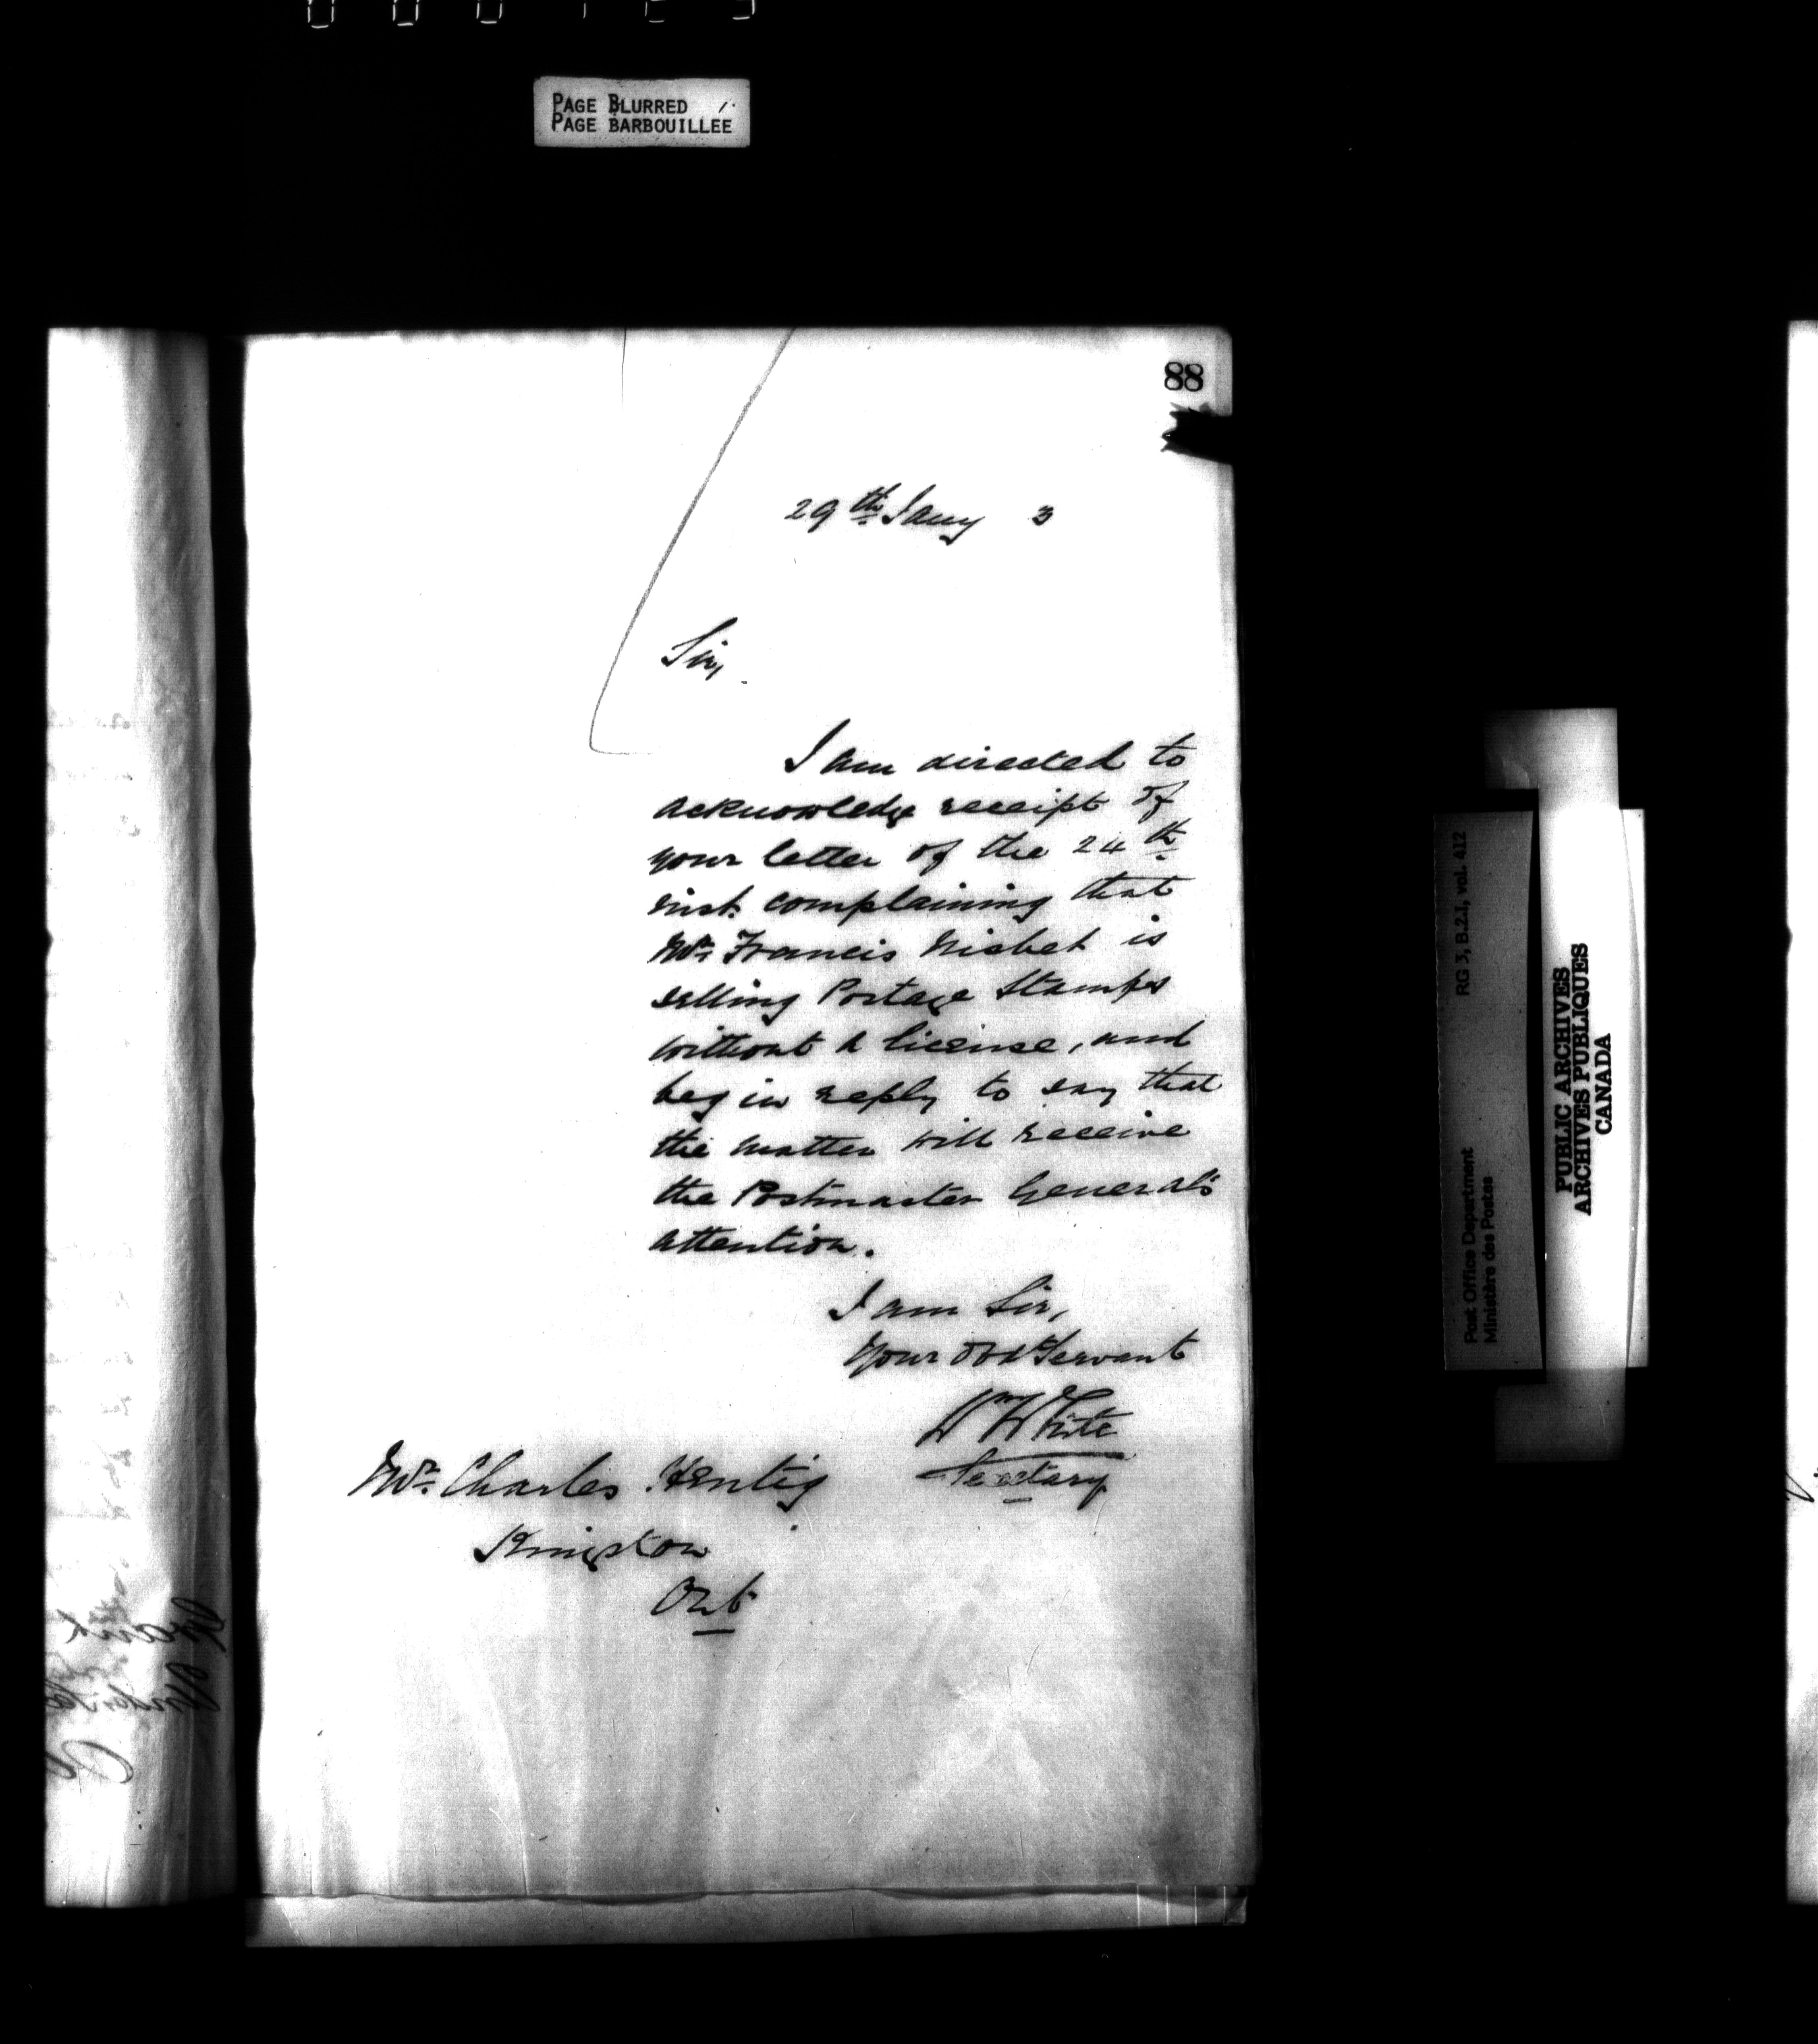 PAGE BLURRED
PAGE BARBOUILLÉE
88
29th Jany 3
Sir,
I am directed to
acknowledge receipt of
your letter of the 24th
inst. complaining that
Mr. Francis Nisbet is
selling Postage Stamps
without a license, and
beg in reply to say that
the matter will receive
the Postmaster General's
attention.
I am Sir,
Your Obdt Servant
Wm White
Secretary
Mr. Charles Hentig
Kingston
Ont
RG 3, B.2.1, vol. 412
Post Office Department
Ministère des Postes
PUBLIC ARCHIVES
ARCHIVES PUBLIQUES
CANADA